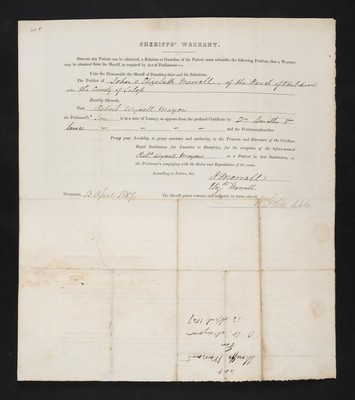 SHERIFFS' WARRANT.
BEFORE any Patient can be admitted, a Relation or Guardian of the Patient must subscribe the following Petition, that a Warrant
may be obtained from the Sheriff, as required by Act of Parliament:—
Unto the Honourable the Sheriff of Dumfries-shire and his Substitute,
The Petition of John & Elizabeth Morrall of the Parish of
in the County of Salop
Humbly Sheweth,
That Robert Wynell Mayow
the Petitioners' Son is in a state of Lunacy, as appears from the prefixed Certificate by Dr Smith &
and the Petitioners therefore
Pray your Lordship to grant warrant and authority to the Trustees and Directors of the Crichton
Royal Institution for Lunatics at Dumfries, for the reception of the before-named
Robt Wynell Mayow as a Patient in that Institution, on
the Petitioners complying with the Rules and Regulations of the same.
According to Justice, &c.
J Morrall
Elizth Morrall
DUMFRIES, 13 April 1847 The Sheriff grants warrant and authority in terms craved.
Warrant
for
R. W. Mayow
13 April 1847